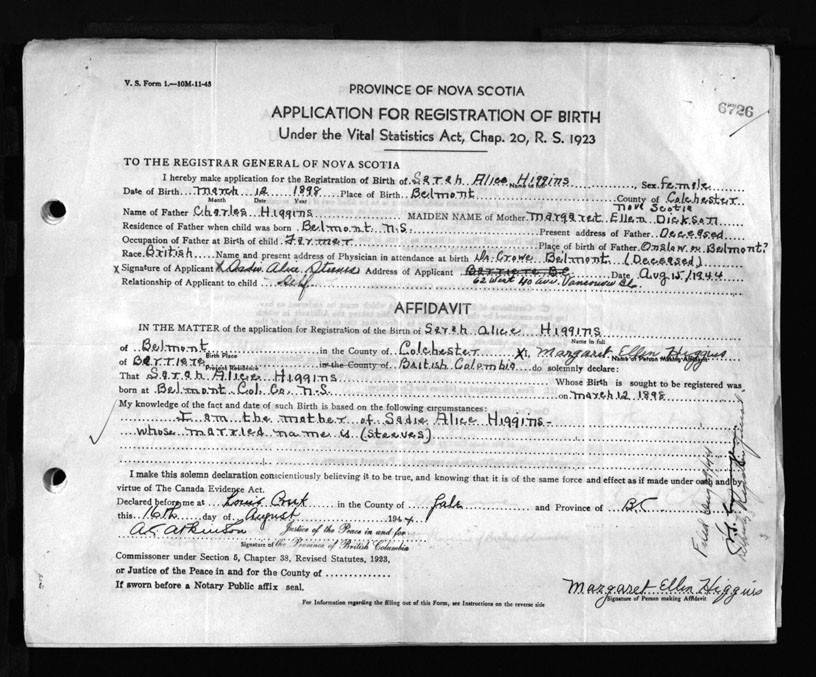 V. S. Form 1.—10M-11-43
PROVINCE OF NOVA SCOTIA
6726
APPLICATION FOR REGISTRATION OF BIRTH
Under the Vital Statistics Act, Chap. 20, R. S. 1923
TO THE REGISTRAR GENERAL OF NOVA SCOTIA
I hereby make application for the Registration of Birth of Sarah Alice Higgins Sex female
Name in full
Date of Birth March 12 1898 Place of Birth Belmont County of Colchester
Month Date Year Nova Scotia
Name of Father Charles Higgins MAIDEN NAME of Mother Margaret Ellen Dickson
Residence of Father when child was born Belmont N.S. Present address of Father Deceased
Occupation of Father at Birth of child Farmer Place of birth of Father Onslow or Belmont?
Race British Name and present address of Physician in attendance at birth Dr. Crowe Belmont (Deceased)
X Signature of Applicant X Sadie Alice Steeves Address of Applicant Barriere B.C. Date Aug 15/1944
Relationship of Applicant to child Self 62 West 40 ave. Vancouver BC.
AFFIDAVIT
IN THE MATTER of the application for Registration of the Birth of Sarah Alice Higgins
Name in full
of Belmont in the County of Colchester X I, Margaret Ellen Higgins
Birth Place Name of Person Making Affidavit
of Barriere in the County of British Colombia do solemnly declare:
Present Residence
That Sarah Alice Higgins Whose Birth is sought to be registered was
born at Belmont Col. Co. N.S. on March 12 1898
My knowledge of the fact and date of such Birth is based on the following circumstances:
I am the mother of Sadie Alice Higgins-
whose married name is (Steeves)
I make this solemn declaration conscientiously believing it to be true, and knowing that it is of the same force and effect as if made under oath and by
virtue of The Canada Evidence Act.
Declared before me at Louis Creek in the County of Yale and Province of B.C.
this 16th day of August 1944
A C Atkinson Justice of the Peace in and for
the Province of British Columbia
Signature of
Commissioner under Section 5, Chapter 38, Revised Statutes, 1923,
or Justice of the Peace in and for the County of
If sworn before a Notary Public affix seal.
Margaret Ellen Higgins
Signature of Person making Affidavit
For Information regarding the filling out of this Form, see Instructions on the reverse side